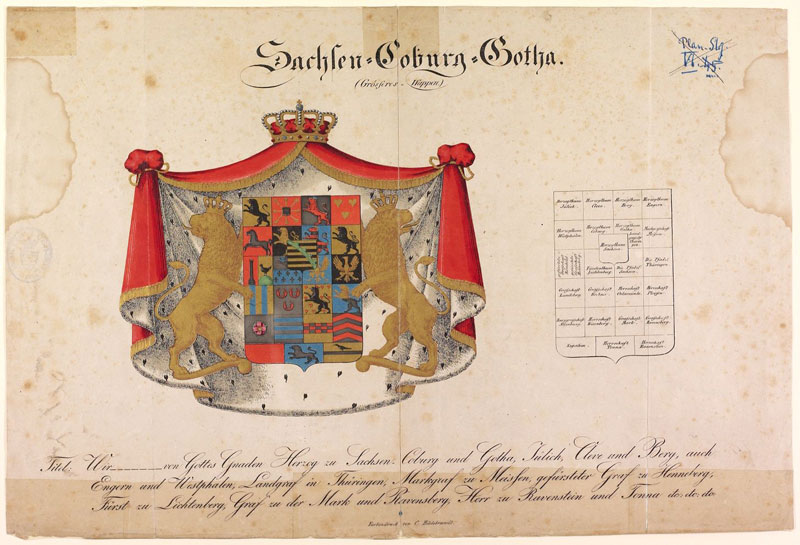 Sachsen-Coburg-Gotha.
(Grösseres Wappen)
Plan. Slg.
VI. 45.
Herzogthum Jülich.
Herzogthum Cleve.
Herzogthum Berg.
Herzogthum Engern.
Herzogthum Westphalen.
Herzogthum Coburg.
Herzogthum Gotha.
Herzogthum Sachsen.
Markgrafschaft Meissen.
Fürstenthum Lichtenberg.
Die Pfalz Sachsen.
Die Pfalz Thüringen.
Grafschaft Landsberg.
Grafschaft Brehna.
Herrschaft Orlamünde.
Herrschaft Pleissn.
Burggrafschaft Altenburg.
Herrschaft Eisenberg.
Grafschaft Mark.
Grafschaft Ravensberg.
Regalien.
Herrschaft Tonna.
Herrschaft Ravenstein.
Titel. Wir von Gottes Gnaden Herzog zu Sachsen-Coburg und Gotha, Jülich, Cleve und Berg, auch
Engern und Westphalen, Landgraf in Thüringen, Markgraf zu Meissen, gefürsteter Graf zu Henneberg,
Fürst zu Lichtenberg, Graf zu der Mark und Ravensberg, Herr zu Ravenstein und Tonna do. do. do.
Farbendruck von C. Hildebrandt.